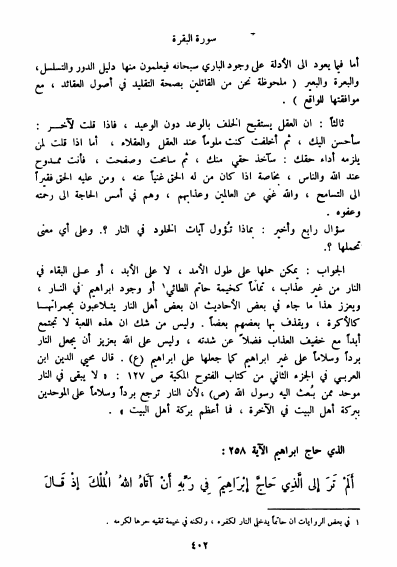 سورة البقرة
أما فيما يعود الى الأدلة على وجود الباري سبحانه فيعلمون منها دليل الدور والتسلسل،
والبعرة والبعير ( ملحوظة نحن من القائلين بصحة التقليد في أصول العقائد ، مع
موافقتها للواقع ) .
ثالثاً : ان العقل يستقبح الخلف بالوعد دون الوعيد ، فاذا قلت لآخر :
سأحسن اليك ، ثم أخلفت كنت ملوماً عند العقل والعقلاء ، أما اذا قلت لمن
يلزمه أداء حقك : سآخذ حقي منك ، ثم سامحت وصفحت ، فأنت ممدوح
عند الله والناس ، بخاصة اذا كان من له الحق غنياً عنه ، ومن عليه الحق فقيراً
الى التسامح ، والله غني عن العالمين وعذابهم ، وهم في أمس الحاجة الى رحمته
وعفوه .
سؤال رابع وأخير : بماذا تؤول آيات الخلود في النار ؟. وعلى أي معنى
تحملها ؟.
الجواب : يمكن حملها على طول الأمد ، لا على الأبد ، أو على البقاء في
النار من غير عذاب ، تماماً كخيمة حاتم الطائي ١ أو وجود ابراهيم في النار ،
ويعزز هذا ما جاء في بعض الأحاديث ان بعض أهل النار يتلاعبون بجمراتها
كالأكرة ، ويقذف بها بعضهم بعضاً . وليس من شك ان هذه اللعبة لا تجتمع
أبداً مع خفيف العذاب فضلاً عن شدته ، وليس على الله بعزيز أن يجعل النار
برداً وسلاماً على غير ابراهيم كما جعلها على ابراهيم (ع) . قال محيي الدين ابن
العربي في الجزء الثاني من كتاب الفتوح المكية ص ١٢٧ : « لا يبقى في النار
موحد ممن بُعث اليه رسول الله (ص) ،لأن النار ترجع برداً وسلاماً على الموحدين
ببركة أهل البيت في الآخرة ، فما أعظم بركة أهل البيت » .
الذي حاج ابراهيم الآية ٢٥٨ :
أَلَمْ تَرَ إِلَى ٱلَّذِي حَاجَّ إِبْرَاهِيمَ فِي رَبِّهِ أَنْ آتَاهُ اللهُ الْمُلْكَ إِذْ قَالَ
١ في بعض الروايات ان حاتماً يدخل النار لكفره ، ولكنه في خيمة تقيه حرها لكرمه .
٤٠٢